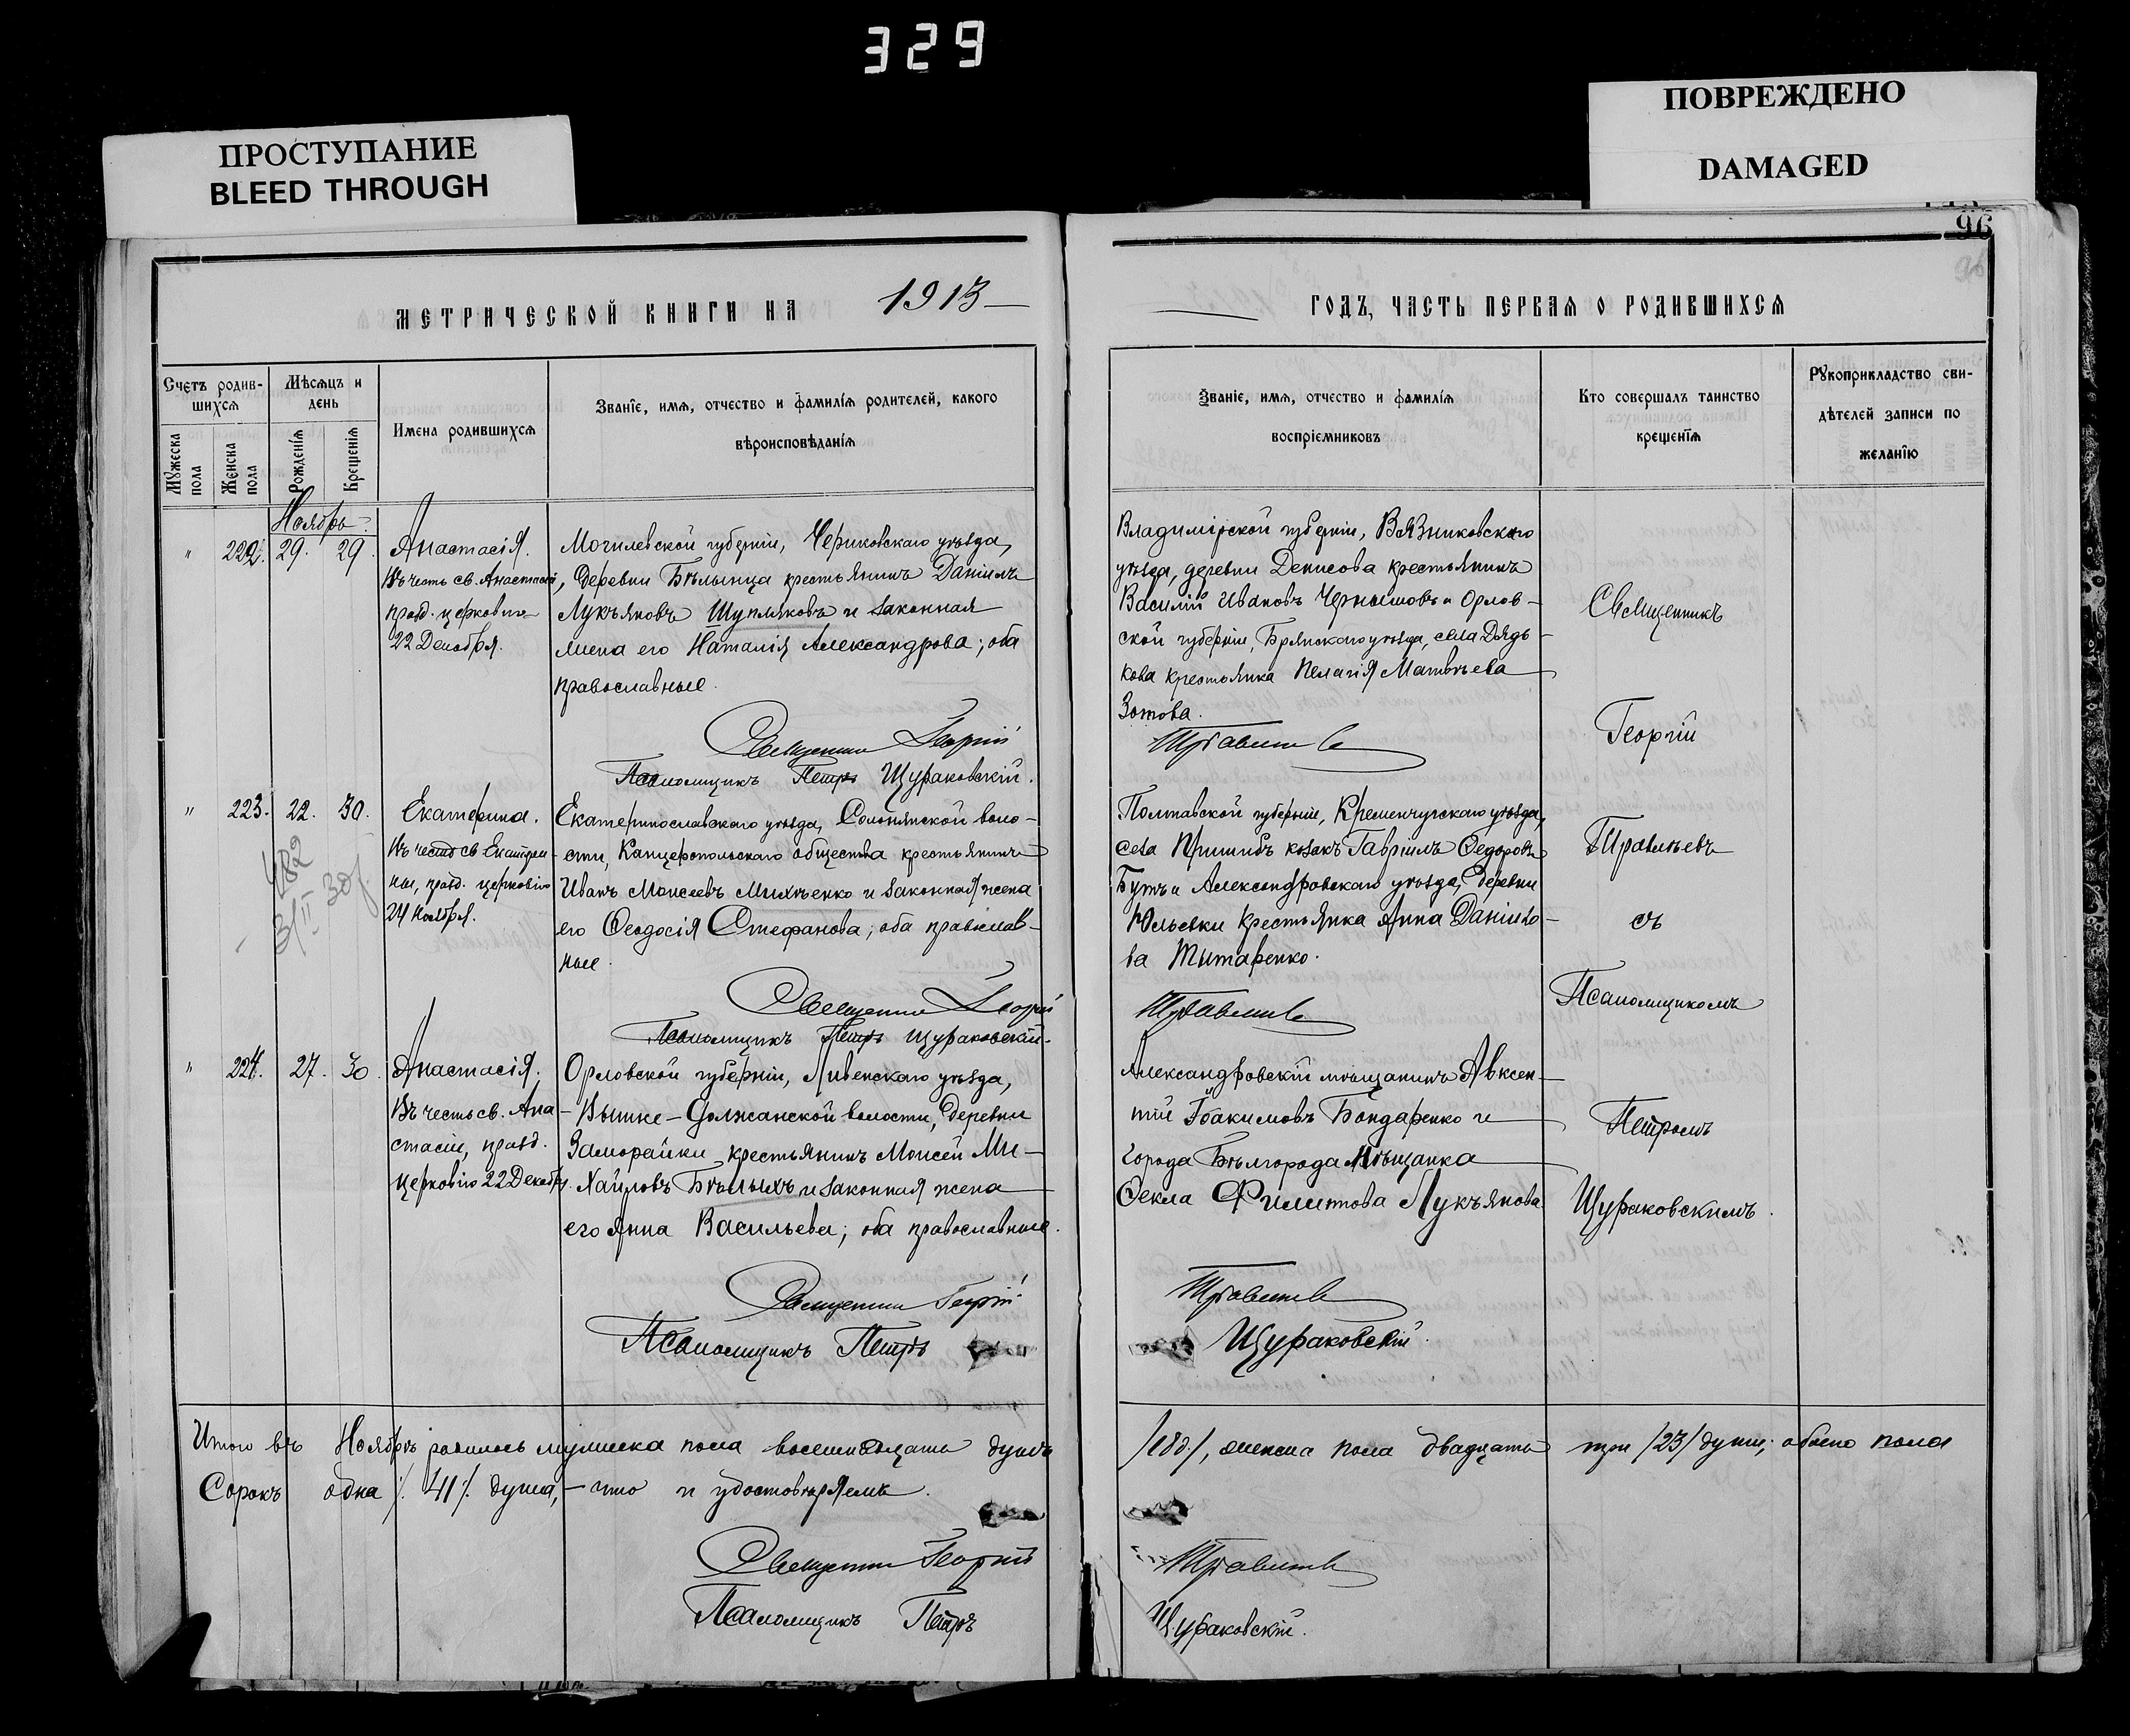 329
ПРОСТУПАНИЕ
BLEED THROUGH
ПОВРЕЖДЕНО
DAMAGED
96
МЕТРИЧЕСКОЙ КНИГИ НА 1913
ГОДЪ, ЧАСТЬ ПЕРВАЯ О РОДИВШИХСЯ
Счетъ родив-
шихся
Мѣсяцъ и
день
Мужеска
пола
Женска
пола
Рожденія
Крещенія
Имена родившихся
Званіе, имя, отчество и фамилія родителей, какого
вѣроисповѣданія
Званіе, имя, отчество и фамилія
воспріемниковъ
Кто совершалъ таинство
крещенія
Рукоприкладство сви-
дѣтелей записи по
желанію
Ноябрь.
" 222. 29. 29.
Анастасія.
Въ честь св. Анастасіи,
празд. церковію
22 Декабря.
Могилевской губерніи, Чериковскаго уѣзда,
деревни Бѣлынца крестьянинъ Даніилъ
Лукьяновъ Шупляковъ и законная
жена его Наталія Александрова; оба
православные.
Священникъ Георгій
Псаломщикъ Петръ Щураковскій.
Владимірской губерніи, Вязниковскаго
уѣзда, деревни Денисова крестьянинъ
Василій Ивановъ Чернышовъ и Орлов-
ской губерніи, Брянскаго уѣзда, села Дядь-
кова крестьянка Пелагія Матвѣева
Зотова.
" 223. 22. 30.
Екатерина.
Въ честь св Екатери-
ны, празд. церковію
24 Ноября.
482
Екатеринославскаго уѣзда, Солонянской воло-
сти, Канцеропольскаго общества крестьянинъ
Иванъ Моисеевъ Михѣенко и законная жена
его Феодосія Стефанова; оба православ-
ные.
Священникъ Георгій
Псаломщикъ Петръ Щураковскій.
Полтавской губерніи, Кременчугскаго уѣзда,
села Пришибъ козакъ Гавріилъ Федоровъ
Бутъ и Александровскаго уѣзда, деревни
Юльевки крестьянка Анна Данiило-
ва Титаренко.
" 224. 27. 30.
Анастасія.
Въ честь св. Ана-
стасіи, празд.
церковію 22 Декабр.
Орловской губерніи, Ливенскаго уѣзда,
Вышне-Должанской волости, деревни
Заморайки крестьянинъ Моисей Ми-
хайловъ Бѣлыхъ и законная жена
его Анна Васильева; оба православные.
Священникъ Георгій
Псаломщикъ Петръ
Александровскій мѣщанинъ Авксен-
тій Іоакимовъ Бондаренко и
города Бѣлгорода мѣщанка
Фекла Филиппова Лукьянова.
Щураковскій.
Священникъ
Георгій
съ
Псаломщикомъ
Петромъ
Щураковскимъ.
Итого въ Ноябрѣ родилось мужеска пола восемнадцать душъ /18/, женска пола двадцать три /23/ души; обоего пола
сорокъ одна /. 41 /. душа, - что и удостовѣряемъ.
Священникъ Георгій
Псаломщикъ Петръ
Щураковскій.